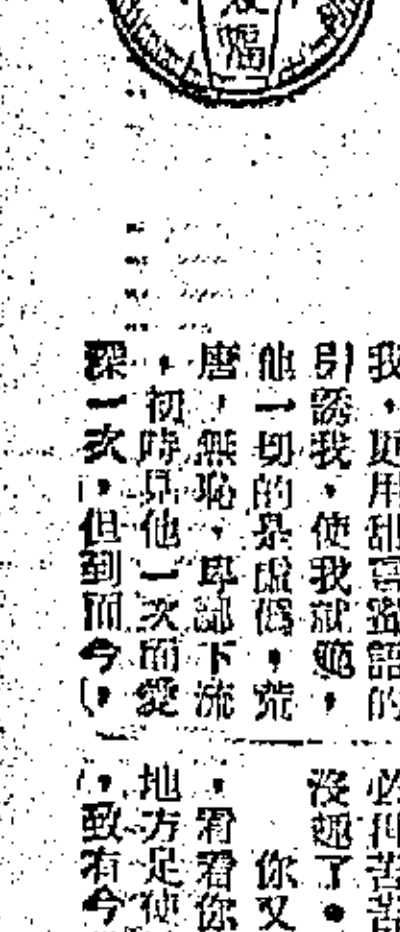 福
我,更用甜言蜜語的
引誘我,使我就範,
他一切的是虛僞,荒
唐,無恥,卑鄙下流
,初時見他一次而愛
深一次,但到而今,
必何苦苦
沒趣了。
你又
,看看你
地方足使
,致有今